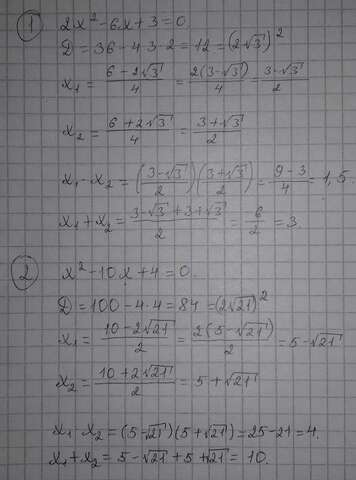 ① 2x² - 6x + 3 = 0.
D = 36 - 4·3·2 = 12 = (2√3)²
x₁ = (6 - 2√3)/4 = 2(3 - √3)/4 = (3 - √3)/2
x₂ = (6 + 2√3)/4 = (3 + √3)/2
x₁ · x₂ = ((3 - √3)/2)((3 + √3)/2) = (9 - 3)/4 = 1,5.
x₁ + x₂ = (3 - √3 + 3 + √3)/2 = 6/2 = 3.
② x² - 10x + 4 = 0.
D = 100 - 4·4 = 84 = (2√21)²
x₁ = (10 - 2√21)/2 = 2(5 - √21)/2 = 5 - √21
x₂ = (10 + 2√21)/2 = 5 + √21
x₁ · x₂ = (5 - √21)(5 + √21) = 25 - 21 = 4.
x₁ + x₂ = 5 - √21 + 5 + √21 = 10.